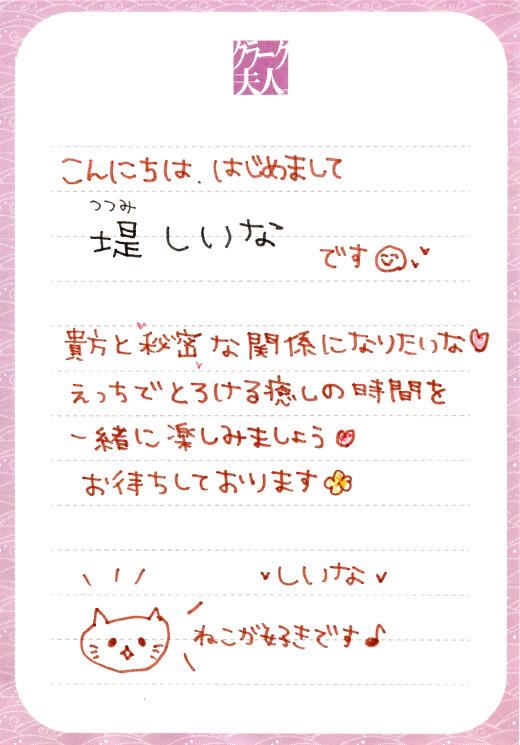 クラーク
夫人
こんにちは、はじめまして
つつみ
堤 しいな
です
貴方と秘密な関係になりたいな
えっちでとろける癒しの時間を
一緒に楽しみましょう
お待ちしております
しいな
ねこが好きです♪